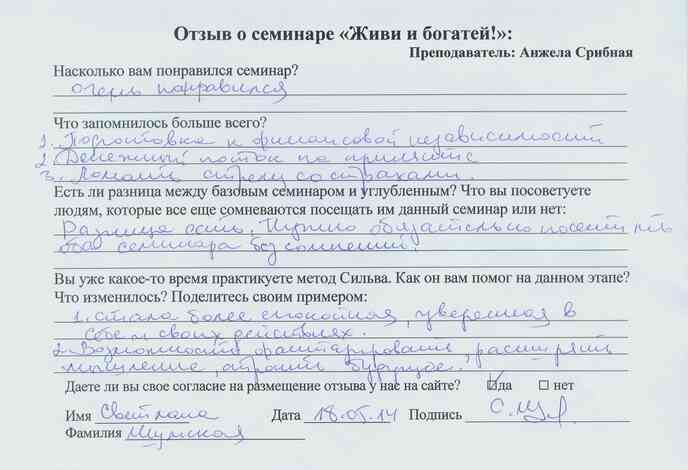 Отзыв о семинаре «Живи и богатей!»:
Преподаватель: Анжела Срибная
Насколько вам понравился семинар?
очень понравился
Что запомнилось больше всего?
1. Подготовка к финансовой независимости
2. Денежный поток на
3. Ломали стрелу со страхами.
Есть ли разница между базовым семинаром и углубленным? Что вы посоветуете
людям, которые все еще сомневаются посещать им данный семинар или нет:
Разница есть. Нужно обязательно посетить
оба семинара без сомнений.
Вы уже какое-то время практикуете метод Сильва. Как он вам помог на данном этапе?
Что изменилось? Поделитесь своим примером:
1. Стала более спокойная, уверенная в
себе и своих действиях.
2. Возможность фантазировать, расширять
мышление, строить будущее.
Даете ли вы свое согласие на размещение отзыва у нас на сайте? да нет
Имя Светлана Дата 18.05.14 Подпись
Фамилия Шумская